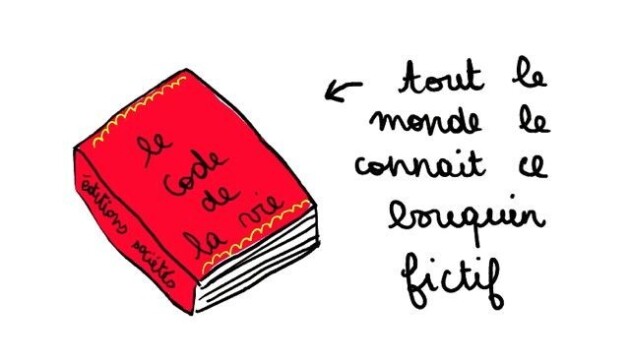 le
code
de
la vie
éditions sociétés
tout le
monde le
connait ce
bouquin
fictif